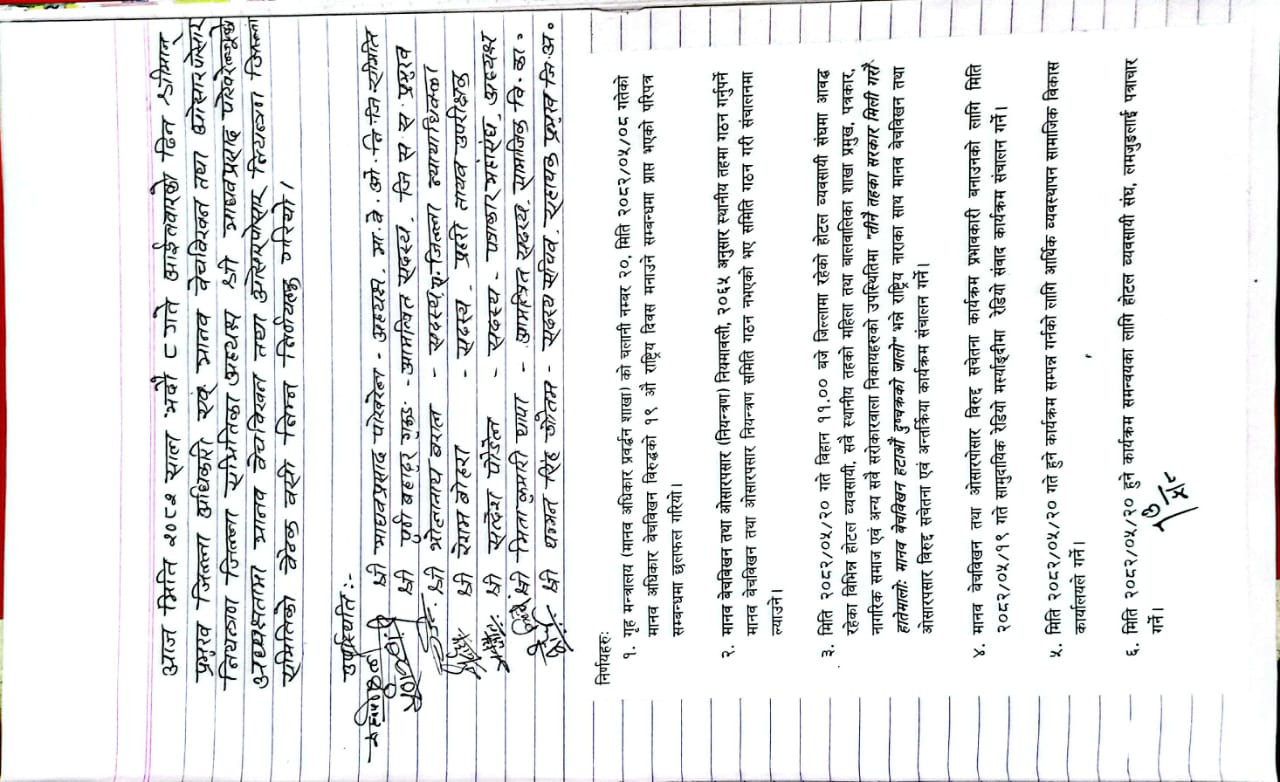 आज मिति २०८२ साल भदौ ८ गते आईतवारका दिन श्रीमान्
प्रमुख जिल्ला अधिकारी एवं मानव वेचविखन तथा ओसारपोसार
नियन्त्रण जिल्ला समितिका अध्यक्ष श्री माधवप्रसाद पोखरेलज्यूको
अध्यक्षतामा मानव वेचविखन तथा ओसारपोसार नियन्त्रण जिल्ला
समितिको बैठक बसी निम्न निर्णयहरू गरियो।
उपस्थिति:-
श्री माधवप्रसाद पोखरेल - अध्यक्ष, मा.बे.ओ.नि.जि.समिति
श्री पूर्ण बहादुर गुरुङ - आमन्त्रित सदस्य, जि.स.स. प्रमुख
श्री भोलानाथ बराल - सदस्य, जिल्ला न्यायाधिवक्ता
श्री रेशम बोहरा - सदस्य, प्रहरी नायव उपरीक्षक
श्री सन्देश पौडेल - सदस्य - पत्रकार महासंघ, अध्यक्ष
श्री मिना कुमारी थापा - आमन्त्रित सदस्य, सामाजिक वि.का.
श्री धनमन सिंह गौतम - सदस्य सचिव, सहायक प्रमुख जि.अ.
निर्णयहरु:
१. गृह मन्त्रालय (मानव अधिकार प्रवर्द्धन शाखा) को चलानी नम्बर २०, मिति २०८२/०५/०८ गतेको
मानव अधिकार बेचविखन विरुद्धको १९ औं राष्ट्रिय दिवस मनाउने सम्बन्धमा प्राप्त भएको परिपत्र
सम्बन्धमा छलफल गरियो।
२. मानव बेचविखन तथा ओसारपसार (नियन्त्रण) नियमावली, २०६५ अनुसार स्थानीय तहमा गठन गर्नुपर्ने
मानव बेचविखन तथा ओसारपसार नियन्त्रण समिति गठन नभएको भए समिति गठन गरी संचालनमा
ल्याउने।
३. मिति २०८२/०५/२० गते विहान ११.०० बजे जिल्लामा रहेको होटल व्यवसायी संघमा आबद्ध
रहेका विभिन्न होटल व्यवसायी, सबै स्थानीय तहको महिला तथा बालबालिका शाखा प्रमुख, पत्रकार,
नागरिक समाज एवं अन्य सबै सरोकारवाला निकायहरुको उपस्थितिमा "तीनै तहका सरकार मिली गरौं
हातेमालो: मानव बेचविखन हटाऔं दुष्चक्रको जालो" भन्ने राष्ट्रिय नाराका साथ मानव बेचविखन तथा
ओसारपसार विरुद्द सचेतना एवं अन्तर्क्रिया कार्यक्रम संचालन गर्ने।
४. मानव बेचविखन तथा ओसारपोसार विरुद्द सचेतना कार्यक्रम प्रभावकारी बनाउनको लागि मिति
२०८२/०५/१९ गते सामुदायिक रेडियो मर्स्याङ्दीमा रेडियो संवाद कार्यक्रम संचालन गर्ने।
५. मिति २०८२/०५/२० गते हुने कार्यक्रम सम्पन्न गर्नको लागि आर्थिक व्यवस्थापन सामाजिक विकास
कार्यालयले गर्ने।
६. मिति २०८२/०५/२० हुने कार्यक्रम समन्वयका लागि होटल व्यवसायी संघ, लमजुङलाई पत्राचार
गर्ने।